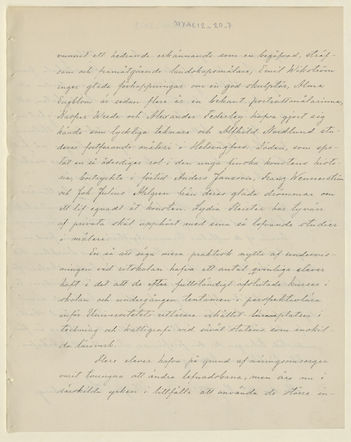 SLSA1212_20_7
vunnit ett hedrande erkännande som en begåfvad, sträf-
sam och framåtgående landskapsmålare, Emil Wikström
inger glada förhoppningar om en god skulptör, Alma
Engblom är sedan flere år en bekant porträttmålarinna,
Kasper Wrede och Alexander Federley hafva gjort sig
kända som lyckliga tecknare och Alfhild Nordlund stu-
derar fortfarande måleri i Helsingfors. Döden, som spe-
lat en så ödesdiger rol i den unga finska konstens histo-
ria, bortryckte i förtid Anders Jansson, Franz Wennerström
och Joh. Julius Ahlgren från deras glada drömmar om
ett lif egnadt åt konsten. Lydia Stenius har tyvärr
af privata skäl upphört med sina så lofvande studier
i måleri.
En så att säga mera praktisk nytta af undervis-
ningen vid ritskolan hafva ett antal qvinnliga elever
haft i det att de efter fullständigt afslutade kurser i
skolan och undergången tentamen i perspektivlära
inför Universitetets ritlärare erhållit lärareplatser i
teckning och kalligrafi vid såväl statens som enskil-
da läroverk.
Flere elever hafva på grund af näringsomsorger
varit tvungna att ändra lefnadsbana, men äro nu i
särskilda yrken i tillfälle att använda de större in-